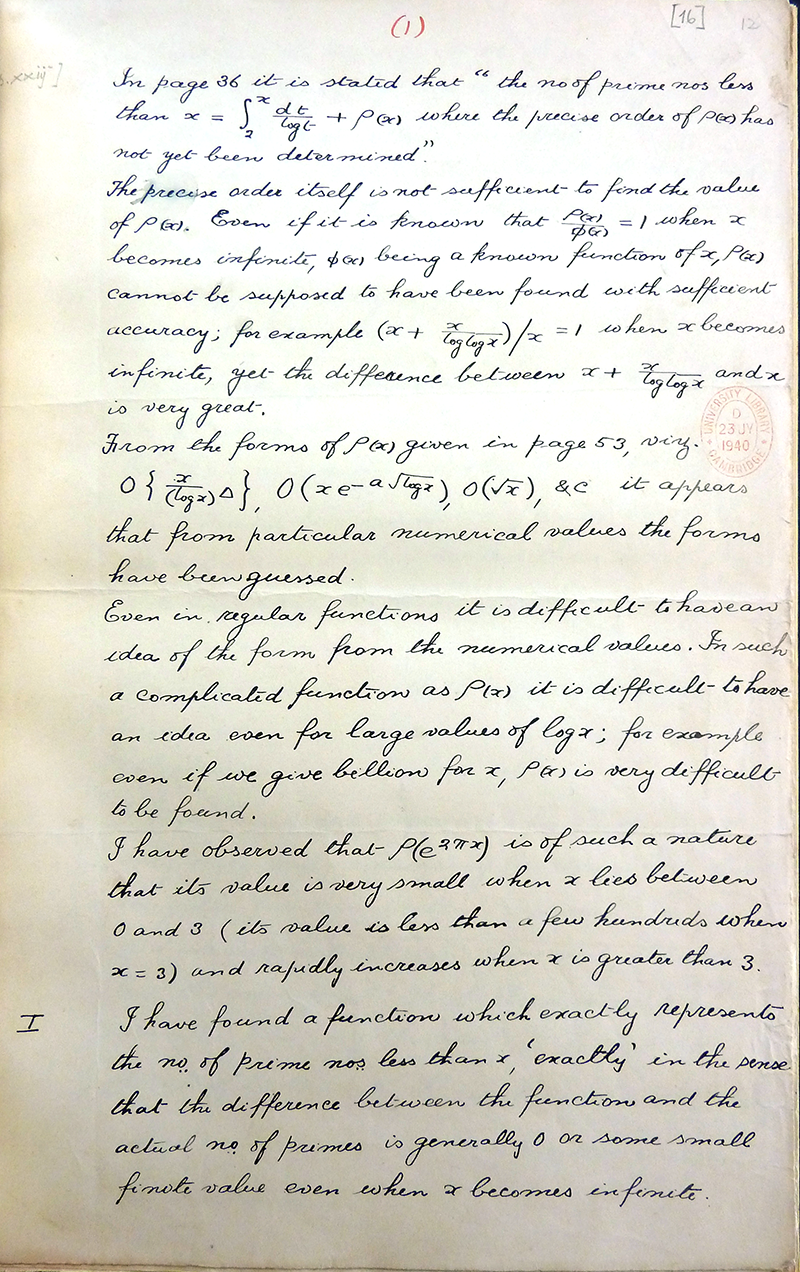 (1)
[16]
12
. xxiij ]
In page 36 it is stated that "the no of prime nos less
than x = ∫₂ˣ dt/log t + ρ(x) where the precise order of ρ(x) has
not yet been determined."
The precise order itself is not sufficient to find the value
of ρ(x). Even if it is known that ρ(x)/φ(x) = 1 when x
becomes infinite, φ(x) being a known function of x, ρ(x)
cannot be supposed to have been found with sufficient
accuracy; for example (x + x/log log x)/x = 1 when x becomes
infinite, yet the difference between x + x/log log x and x
is very great.
UNIVERSITY LIBRARY
D
23 JY
1940
CAMBRIDGE
From the forms of ρ(x) given in page 53, viz.
O{x/(log x)Δ}, O(x e^-a√log x), O(√x), &c it appears
that from particular numerical values the forms
have been guessed.
Even in regular functions it is difficult to have an
idea of the form from the numerical values. In such
a complicated function as ρ(x) it is difficult to have
an idea even for large values of log x; for example
even if we give billion for x, ρ(x) is very difficult
to be found.
I have observed that ρ(e^2πx) is of such a nature
that its value is very small when x lies between
0 and 3 (its value is less than a few hundreds when
x = 3) and rapidly increases when x is greater than 3.
I
I have found a function which exactly represents
the no. of prime nos. less than x, 'exactly' in the sense
that the difference between the function and the
actual no. of primes is generally 0 or some small
finite value even when x becomes infinite.